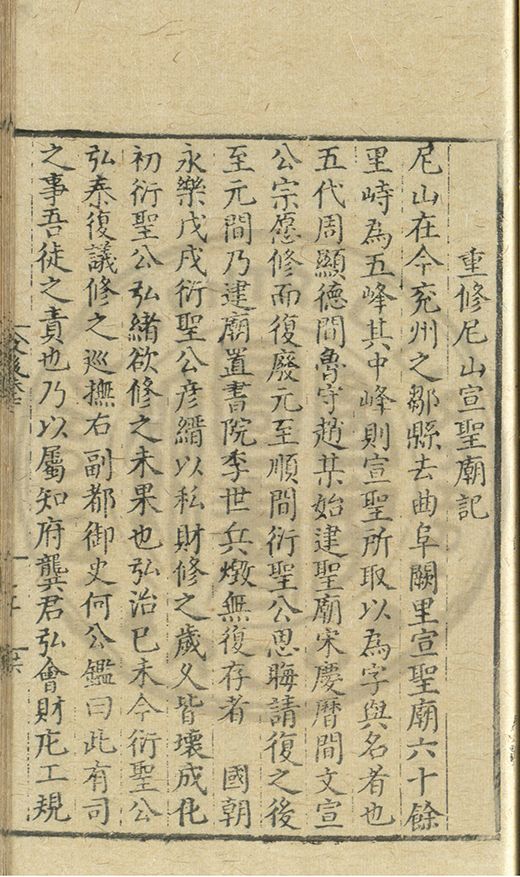 重修尼山宣聖廟記
尼山在今兗州之鄒縣去曲阜闕里宣聖廟六十餘
里峙為五峰其中峰則宣聖所取以為字與名者也
五代周顯德間魯守趙某始建聖廟宋慶曆間文宣
公宗愿修而復廢元至順間衍聖公思晦請復之後
至元間乃建廟置書院季世兵燬無復存者 國朝
永樂戊戌衍聖公彥縉以私財修之歲久皆壞成化
初衍聖公弘緒欲修之未果也弘治己未今衍聖公
弘泰復議修之巡撫右副都御史何公鑑曰此有司
之事吾徒之責也乃以屬知府龔君弘會財庀工規